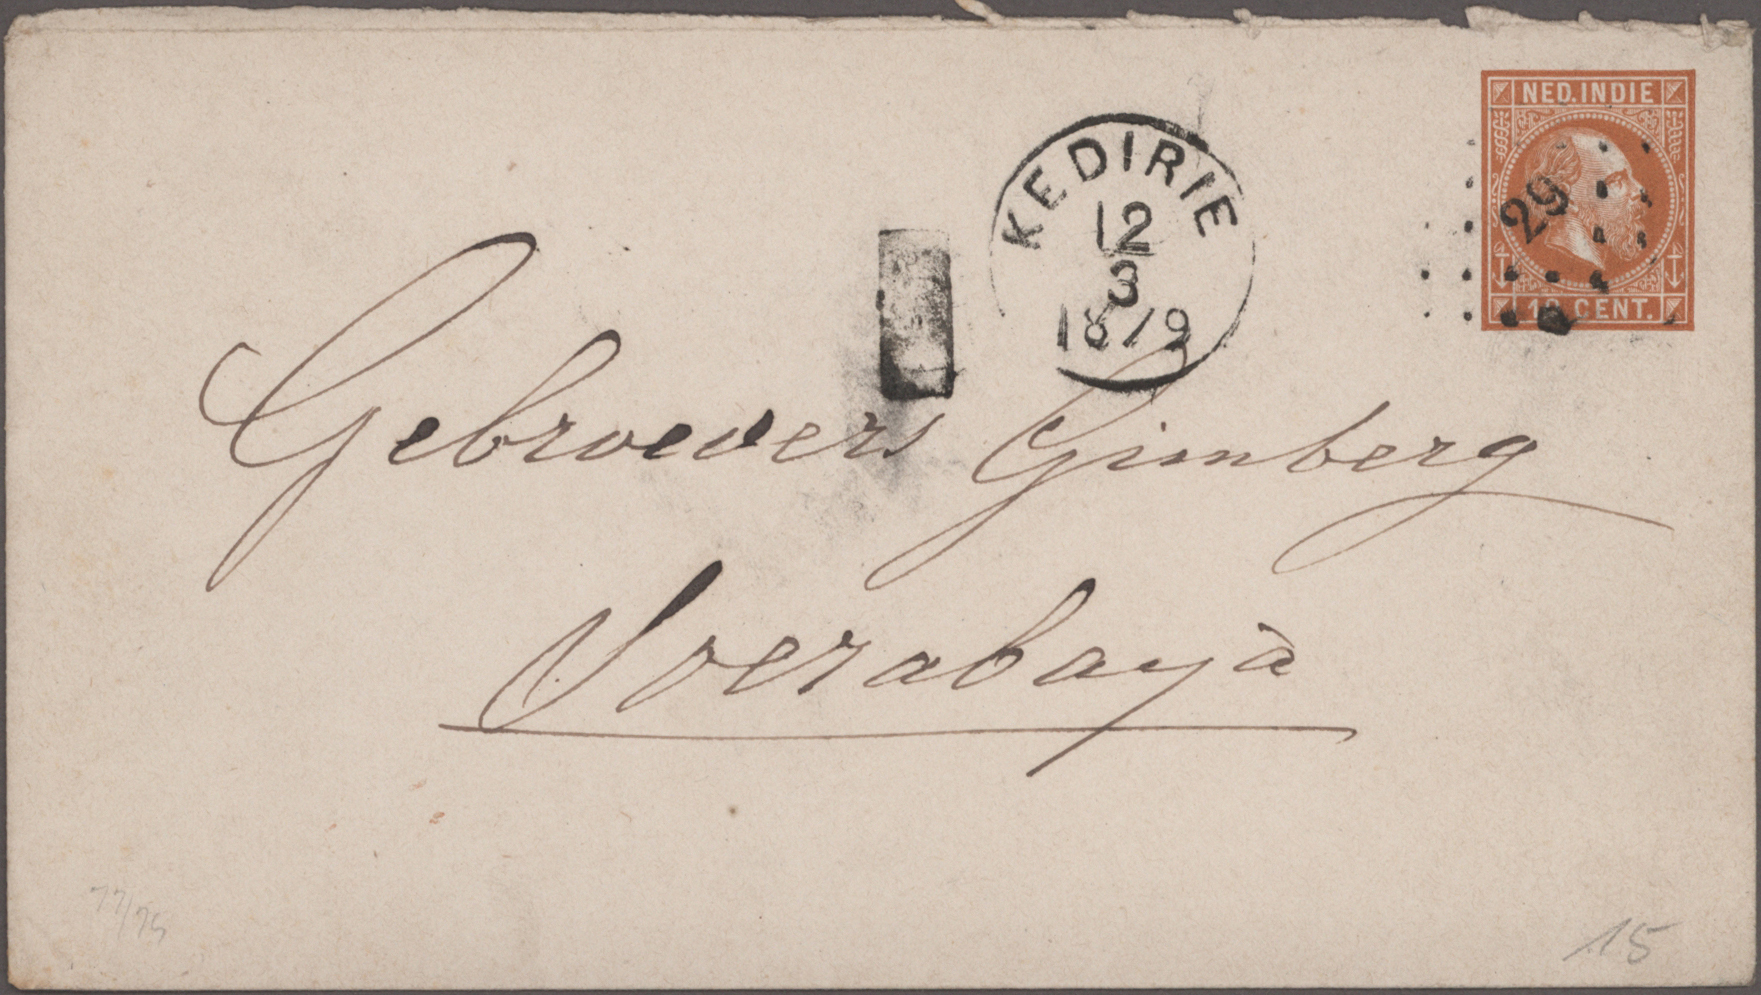 NED. INDIE
KEDIRIE
12
3
1879
29
10 CENT.
Gebroeders Gimberg
Soerabaya
77/75
15